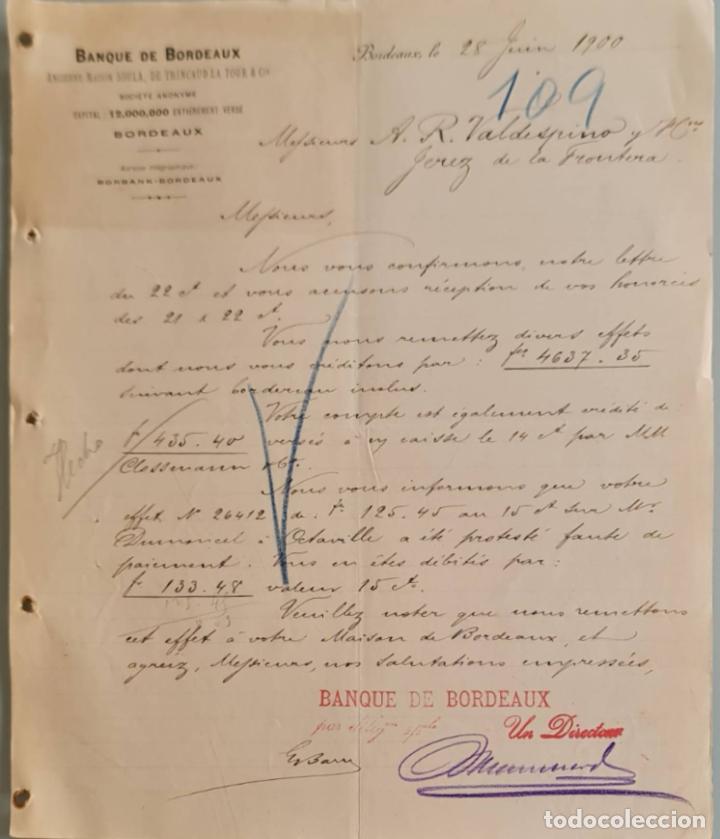 BANQUE DE BORDEAUX
ANCIENNE MAISON SOULA, DE TRINCAUD LA TOUR & Cie
SOCIÉTÉ ANONYME
CAPITAL : 12,000,000 ENTIÈREMENT VERSÉ
BORDEAUX
Adresse télégraphique:
BORBANK-BORDEAUX
Bordeaux, le 28 Juin 1900
109
Messieurs A. R. Valdespino y Hno
Jerez de la Frontera.
Messieurs,
Nous vous confirmons notre lettre
du 22 ct et vous accusons réception de vos honorées
des 21 & 22 ct.
Vous nous remettez divers effets
dont nous vous créditons par : frs 4637.35
suivant bordereau inclus.
Votre compte est également crédité de
f 435.40 versés à n/ caisse le 14 ct par MM
Hecho
Clossmann & Co.
Nous vous informons que votre
effet No 26412 de fr. 125.45 au 15 ct sur Mr
Dumoncel à Octaville a été protesté faute de
paiement. Vous en êtes débités par:
fr 133.48 valeur 15 ct.
125.45
Veuillez noter que nous remettons
cet effet à votre Maison de Bordeaux, et
agréez, Messieurs, nos salutations empressées,
BANQUE DE BORDEAUX
par
Un Directeur
todocoleccion.net